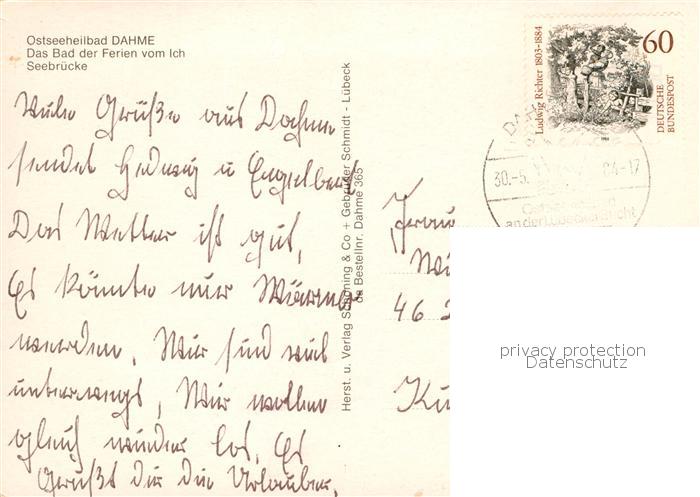 Ostseeheilbad DAHME
Das Bad der Ferien vom Ich
Seebrücke
Viele Grüße aus Dahme
sendet Hedwig u Engelbert
Das Wetter ist gut,
Es könnte nur Wärmer
werden. Wir sind viel
unterwegs, Wir wollen
gleich wieder los. Es
Grüßt dir die Urlauber.
Herst. u. Verlag Schöning & Co + Gebrüder Schmidt - Lübeck
da Bestellnr. Dahme 365
Ludwig Richter 1803-1884
60
DEUTSCHE
BUNDESPOST
30.-5. 84-17
an der Lübecker Bucht
Frau
46 2
privacy protection
Datenschutz